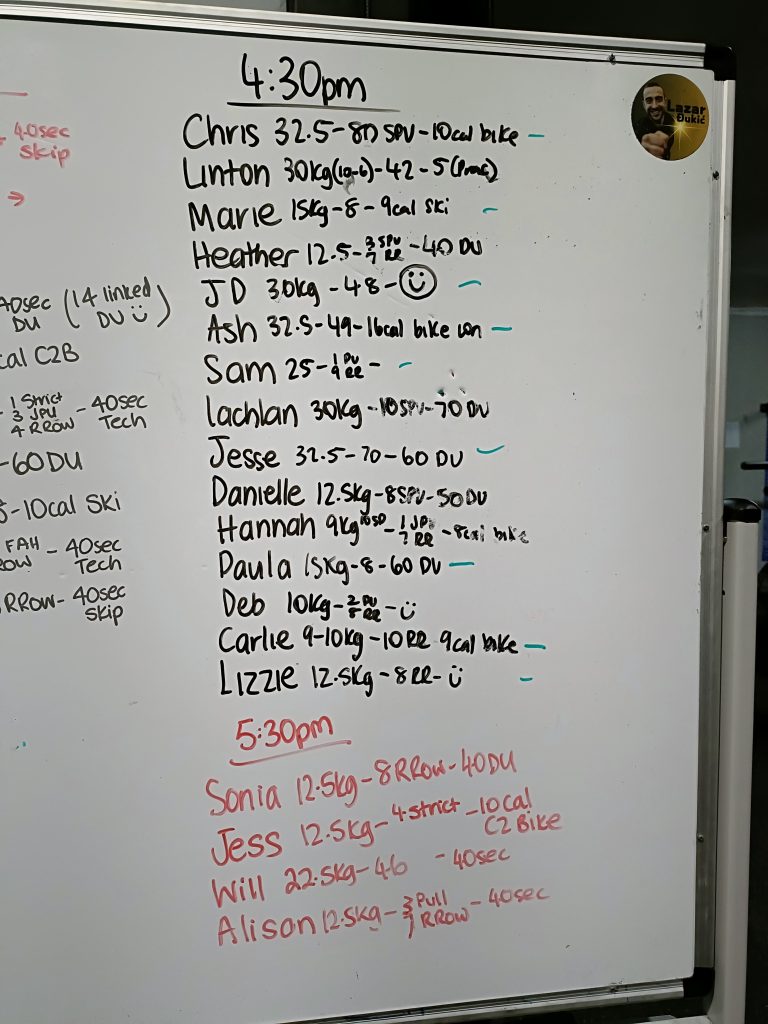 40sec
skip
40sec (14 linked
DU DU ü)
cal C2B
1 Strict
3 JPU - 40sec
4 RROW Tech
-60DU
-10cal Ski
FAH - 40sec
ROW Tech
RROW- 40sec
skip
4:30pm
Chris 32.5-80 SPU-10cal bike -
Linton 30kg(10-6)-42-5(Prac)
Marie 15kg-8-9cal Ski -
Heather 12.5-3 SPU 7 RR-40 DU
JD 30kg-48-
Ash 32.5-49-16cal bike -
Sam 25-1 PU 9 RR-
Lachlan 30kg-10SPU-70 DU
Jesse 32.5-70-60 DU
Danielle 12.5kg-8SPU-50DU
Hannah 9kg-1 JPU 7 RR-8cal bike
Paula 15kg-8-60 DU -
Deb 10kg-2 PU 8 RR-ü
Carlie 9-10kg-10RR 9cal bike -
Lizzie 12.5kg-8RR-ü -
5:30pm
Sonia 12.5kg-8RROW-40DU
Jess 12.5kg-4 strict-10cal
C2 Bike
Will 22.5kg-46 -40sec
Alison 12.5kg-3 Pull 7 RROW-40sec
Lazar
Đukić